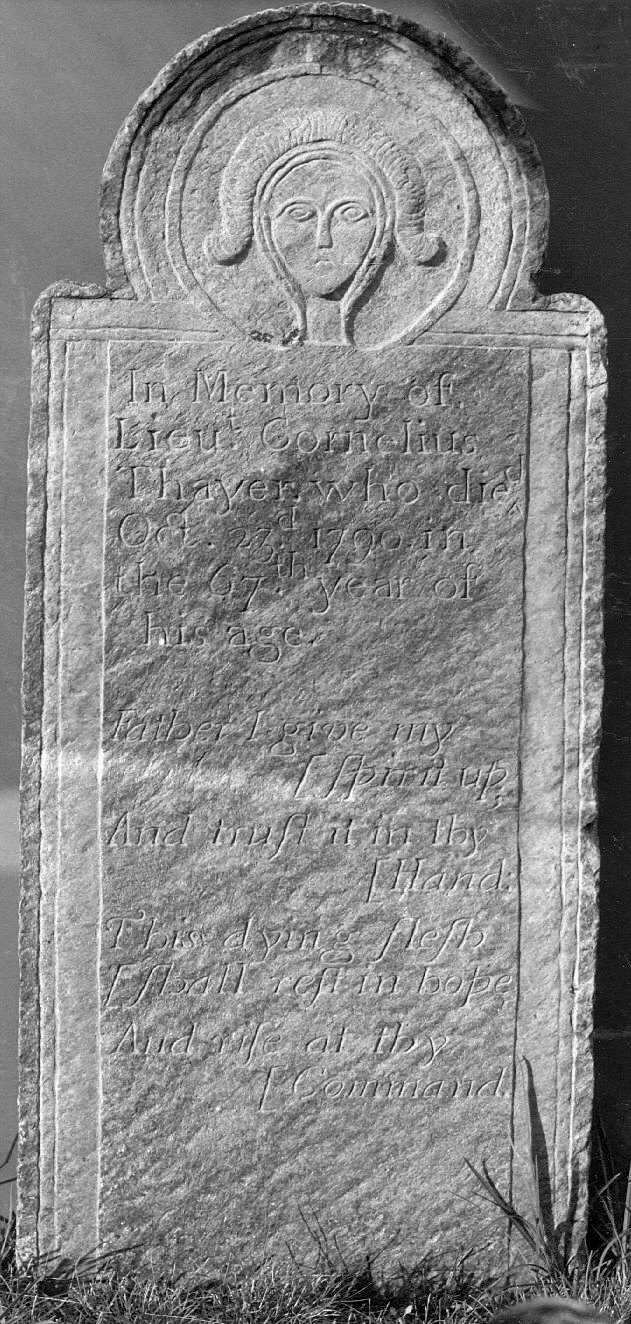 In Memory of
Lieuᵗ. Cornelius
Thayer. who dieᵈ
Oct. 23ᵈ 1790. in
the 67ᵗʰ year of
his age.
Father I give my
[ſpirit up;
And truſt it in thy
[Hand;
This dying fleſh
[ſhall reſt in hope,
And riſe at thy
[Command.